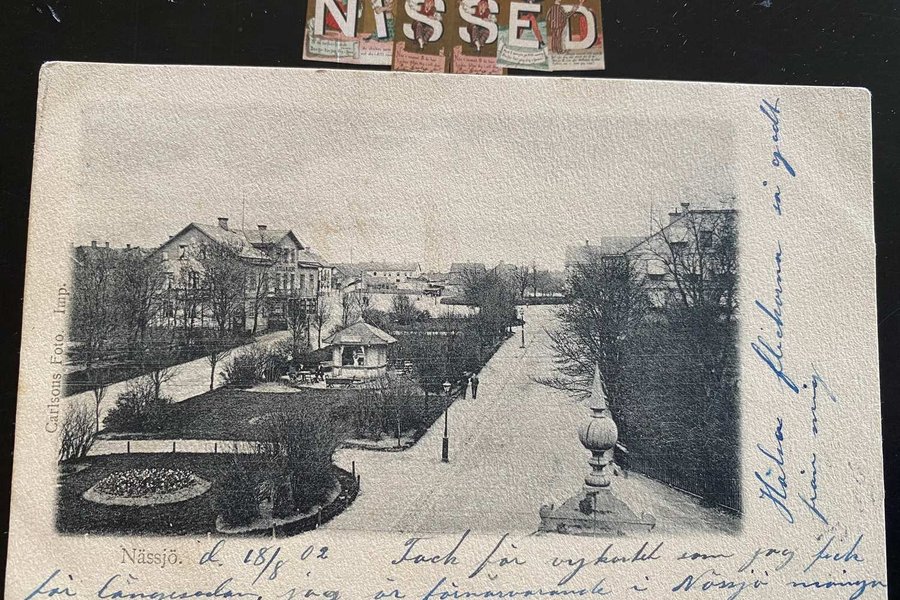 NISSED
Carlsons Foto Imp.
Nässjö. d. 18/8 02 Tack för vykortet som jag fick
för längesedan, jag är förnärvarande i Nässjö många
Hälsa flickorna så godt
från mig